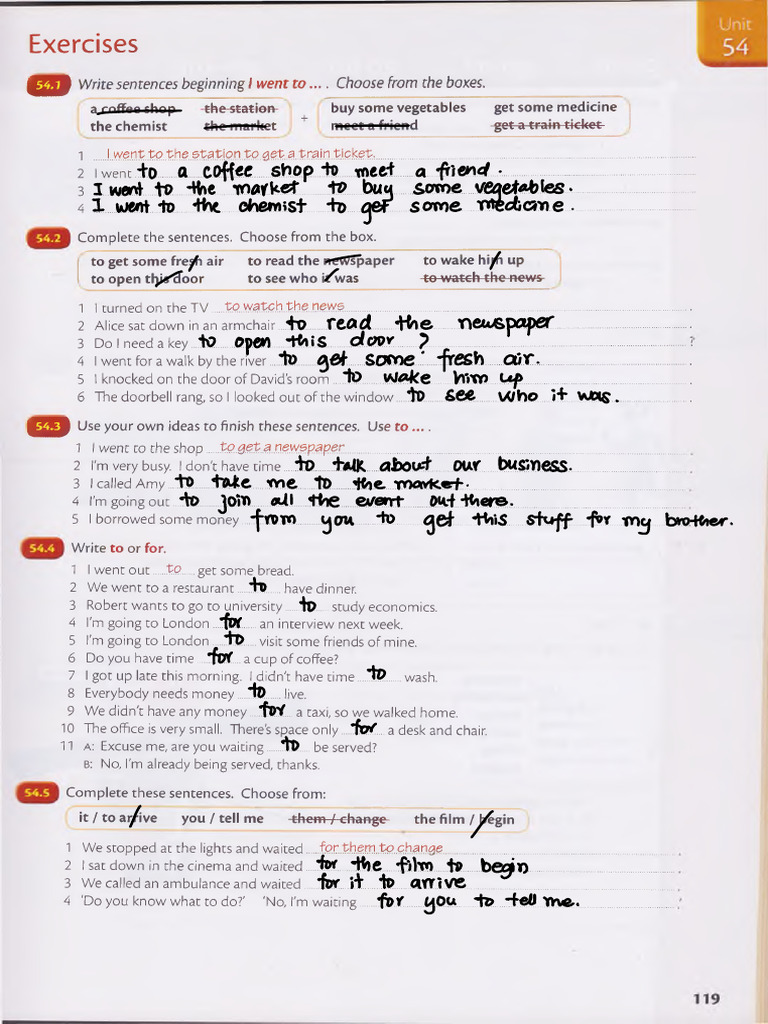 Unit
54
Exercises
54.1 Write sentences beginning I went to ... . Choose from the boxes.
a coffee shop the station buy some vegetables get some medicine
the chemist the market + meet a friend get a train ticket
1 I went to the station to get a train ticket.
2 I went to a coffee shop to meet a friend.
3 I went to the market to buy some vegetables.
4 I went to the chemist to get some medicine.
54.2 Complete the sentences. Choose from the box.
to get some fresh air to read the newspaper to wake him up
to open this door to see who it was to watch the news
1 I turned on the TV to watch the news.
2 Alice sat down in an armchair to read the newspaper.
3 Do I need a key to open this door ? ?
4 I went for a walk by the river to get some fresh air.
5 I knocked on the door of David's room to wake him up.
6 The doorbell rang, so I looked out of the window to see who it was.
54.3 Use your own ideas to finish these sentences. Use to ... .
1 I went to the shop to get a newspaper.
2 I'm very busy. I don't have time to talk about our business.
3 I called Amy to take me to the market.
4 I'm going out to join all the event out there.
5 I borrowed some money from you to get this stuff for my brother.
54.4 Write to or for.
1 I went out to get some bread.
2 We went to a restaurant to have dinner.
3 Robert wants to go to university to study economics.
4 I'm going to London for an interview next week.
5 I'm going to London to visit some friends of mine.
6 Do you have time for a cup of coffee?
7 I got up late this morning. I didn't have time to wash.
8 Everybody needs money to live.
9 We didn't have any money for a taxi, so we walked home.
10 The office is very small. There's space only for a desk and chair.
11 A: Excuse me, are you waiting to be served?
B: No, I'm already being served, thanks.
54.5 Complete these sentences. Choose from:
it / to arrive you / tell me them / change the film / begin
1 We stopped at the lights and waited for them to change.
2 I sat down in the cinema and waited for the film to begin.
3 We called an ambulance and waited for it to arrive.
4 'Do you know what to do?' 'No, I'm waiting for you to tell me.'
119